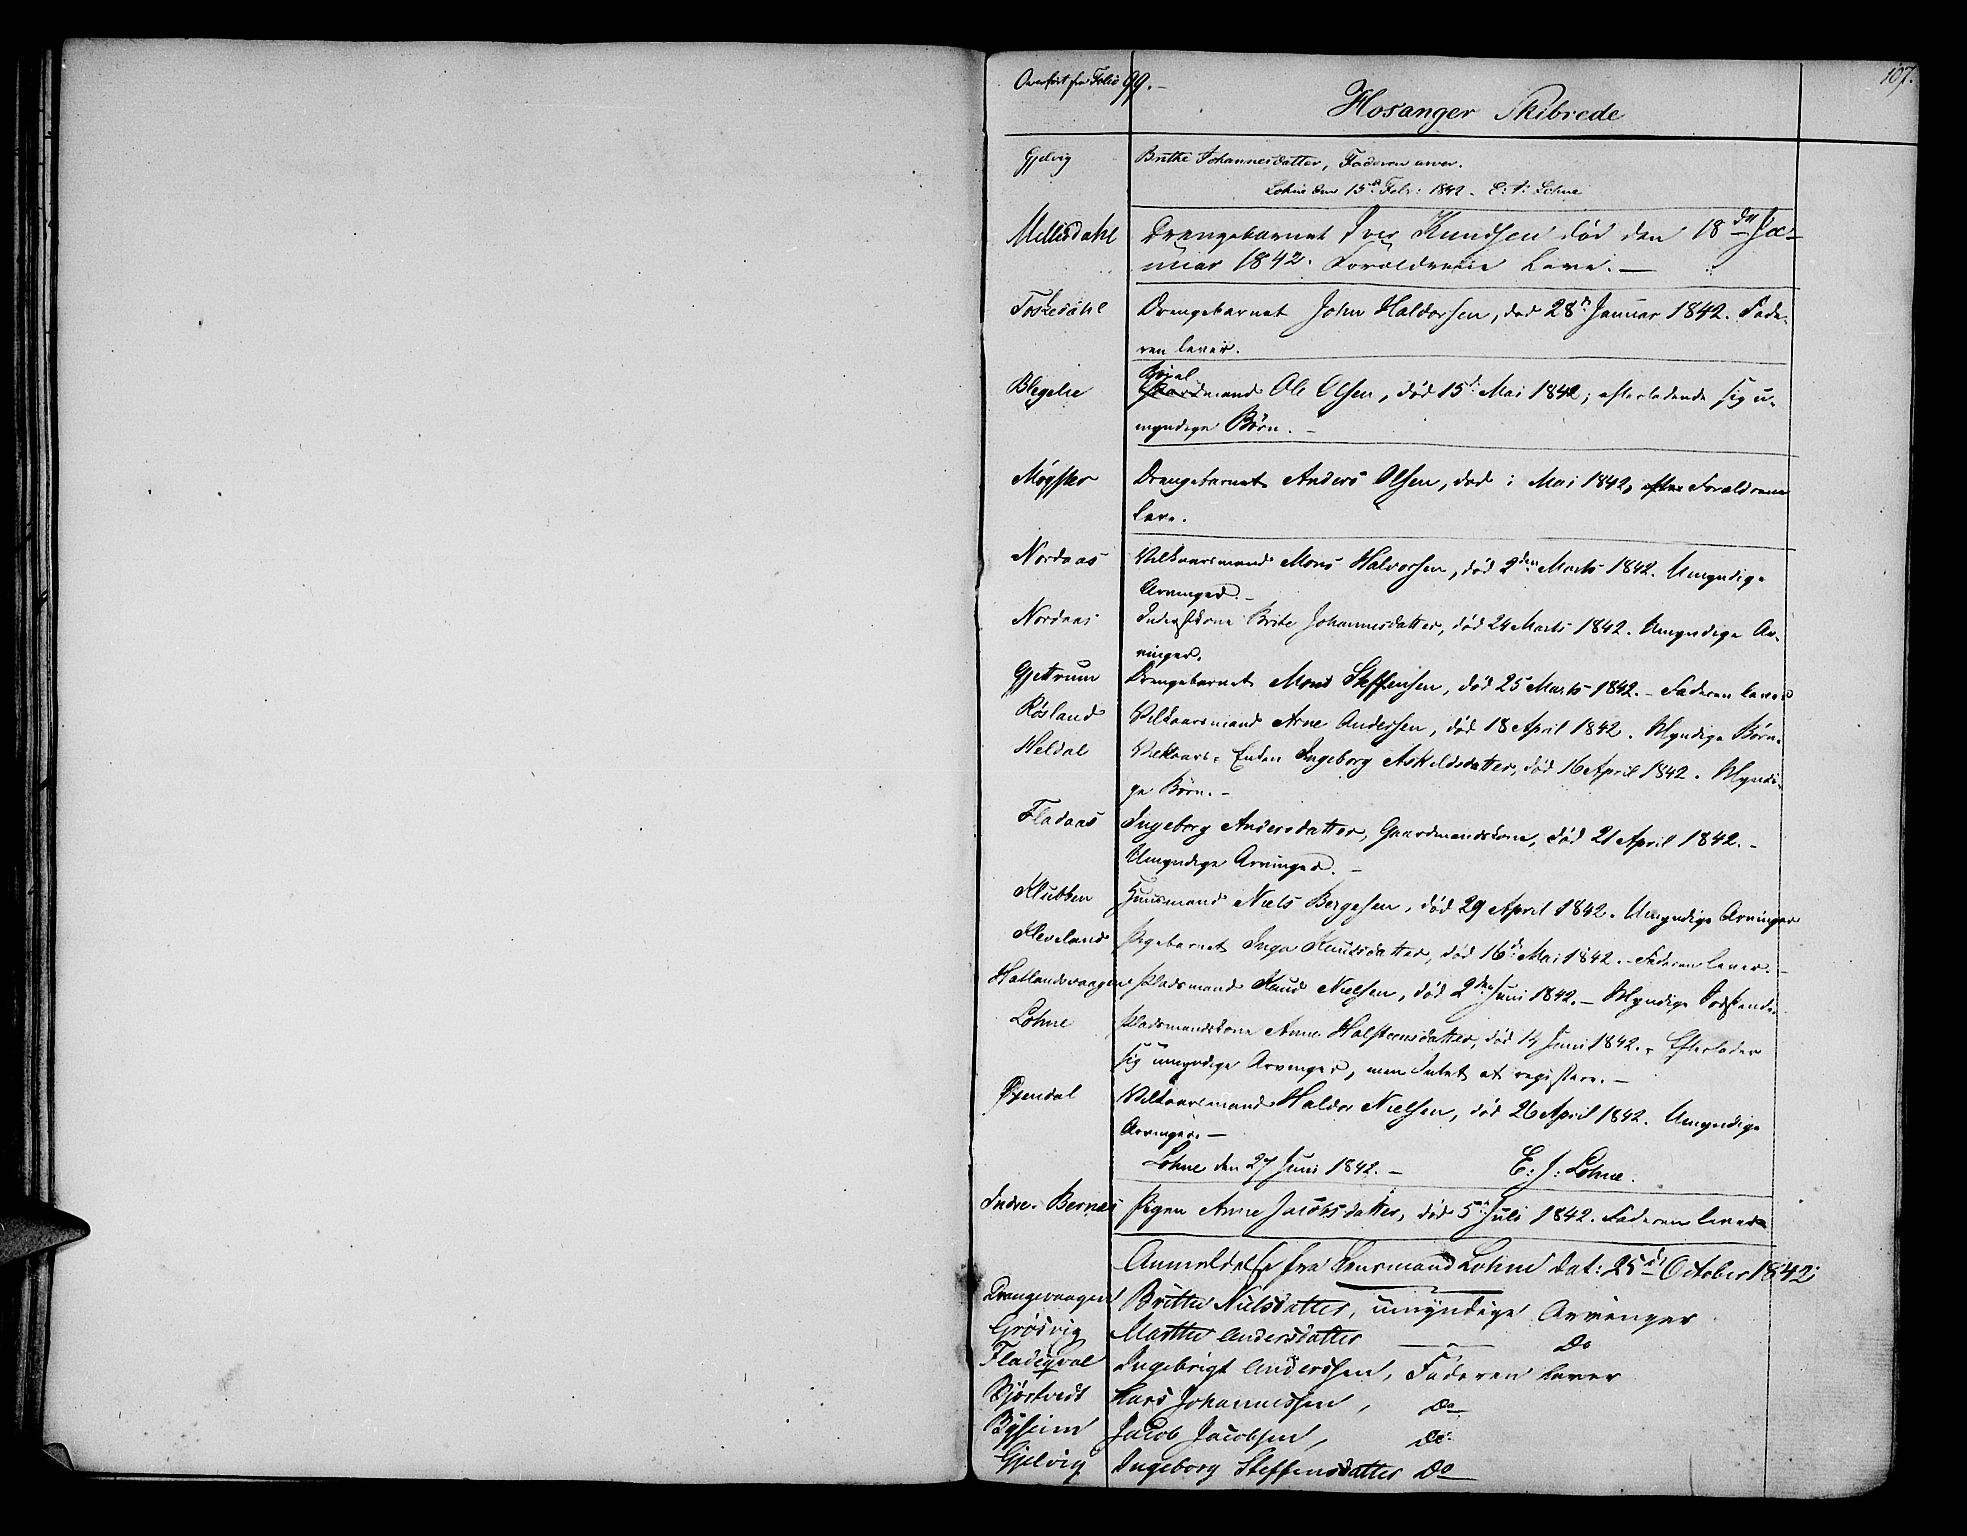 Overført fra Folio 99. 107.
Hosanger Skibrede
Gjelvig Brithe Johannesdatter, Faderen arver.
Lohne den 15de Febr: 1842. E: J: Lohne
Millisdahl Drengebarnet Iver Knudsen død den 18de Ja-
nuar 1842. Forældrene leve.
Toskedahl Drengebarnet John Haldorsen, død 28de Januar 1842. Fade-
ren lever.
Brixel
Gaardmand Ole Olsen, død 15de Mai 1842, efterladende sig u-
myndige Børn.
Møgster Drengebarnet Anders Olsen, død i Mai 1842, efter Forældrene
leve.
Nordaas Vilkaarsmand Mons Halvorsen, død 2den Marts 1842. Umyndige
Arvinger.
Nordaas Inderstkone Brite Johannesdatter, død 24 Marts 1842. Umyndige Ar-
vinger.
Gjettrum Drengebarnet Mons Steffensen, død 25 Marts 1842. Faderen lever
Røsland Vilkaarsmand Arne Andersen, død 18 April 1842. Myndige Børn.
Heldal Vilkaars-Enken Ingeborg Askildsdatter, død 16 April 1842. Myndi-
ge Børn.
Fladaas Ingeborg Andersdatter, Gaardmandskone, død 21 April 1842.
Umyndige Arvinger.
Klubben Huusmand Niels Bergesen, død 29 April 1842. Umyndige Arvinger
Kleveland Pigebarnet Inga Knudsdatter, død 16de Mai 1842. Faderen lever.
Hatlandsvaagen Pladsmand Knud Nielsen, død 2den Juni 1842. Myndige
Lohne Pladsmandskone Anna Halsteensdatter, død 14 Juni 1842. Efterlader
sig umyndige Arvinger, men Intet at registere.
Øxendal Vilkaarsmand Haldor Nielsen, død 26 April 1842. Umyndige
Arvinger.
Lohne den 27 Juni 1842. E: J: Lohne.
Indre Bernæs Pigen Anne Jacobsdatter, død 5de Juli 1842. Faderen lever
Anmeldelse fra Lensmand Lohne dat: 25de October 1842
Drangevaagen Brithe Nielsdatter, umyndige Arvinger
Grøsvig Marthe Andersdatter Do
Fladeqval Ingebrigt Anderssen, Faderen lever
Bjørtvedt Lars Johannessen, Do
Bysheim Jacob Jacobsen, Do
Gjelvig Ingeborg Steffensdatter Do